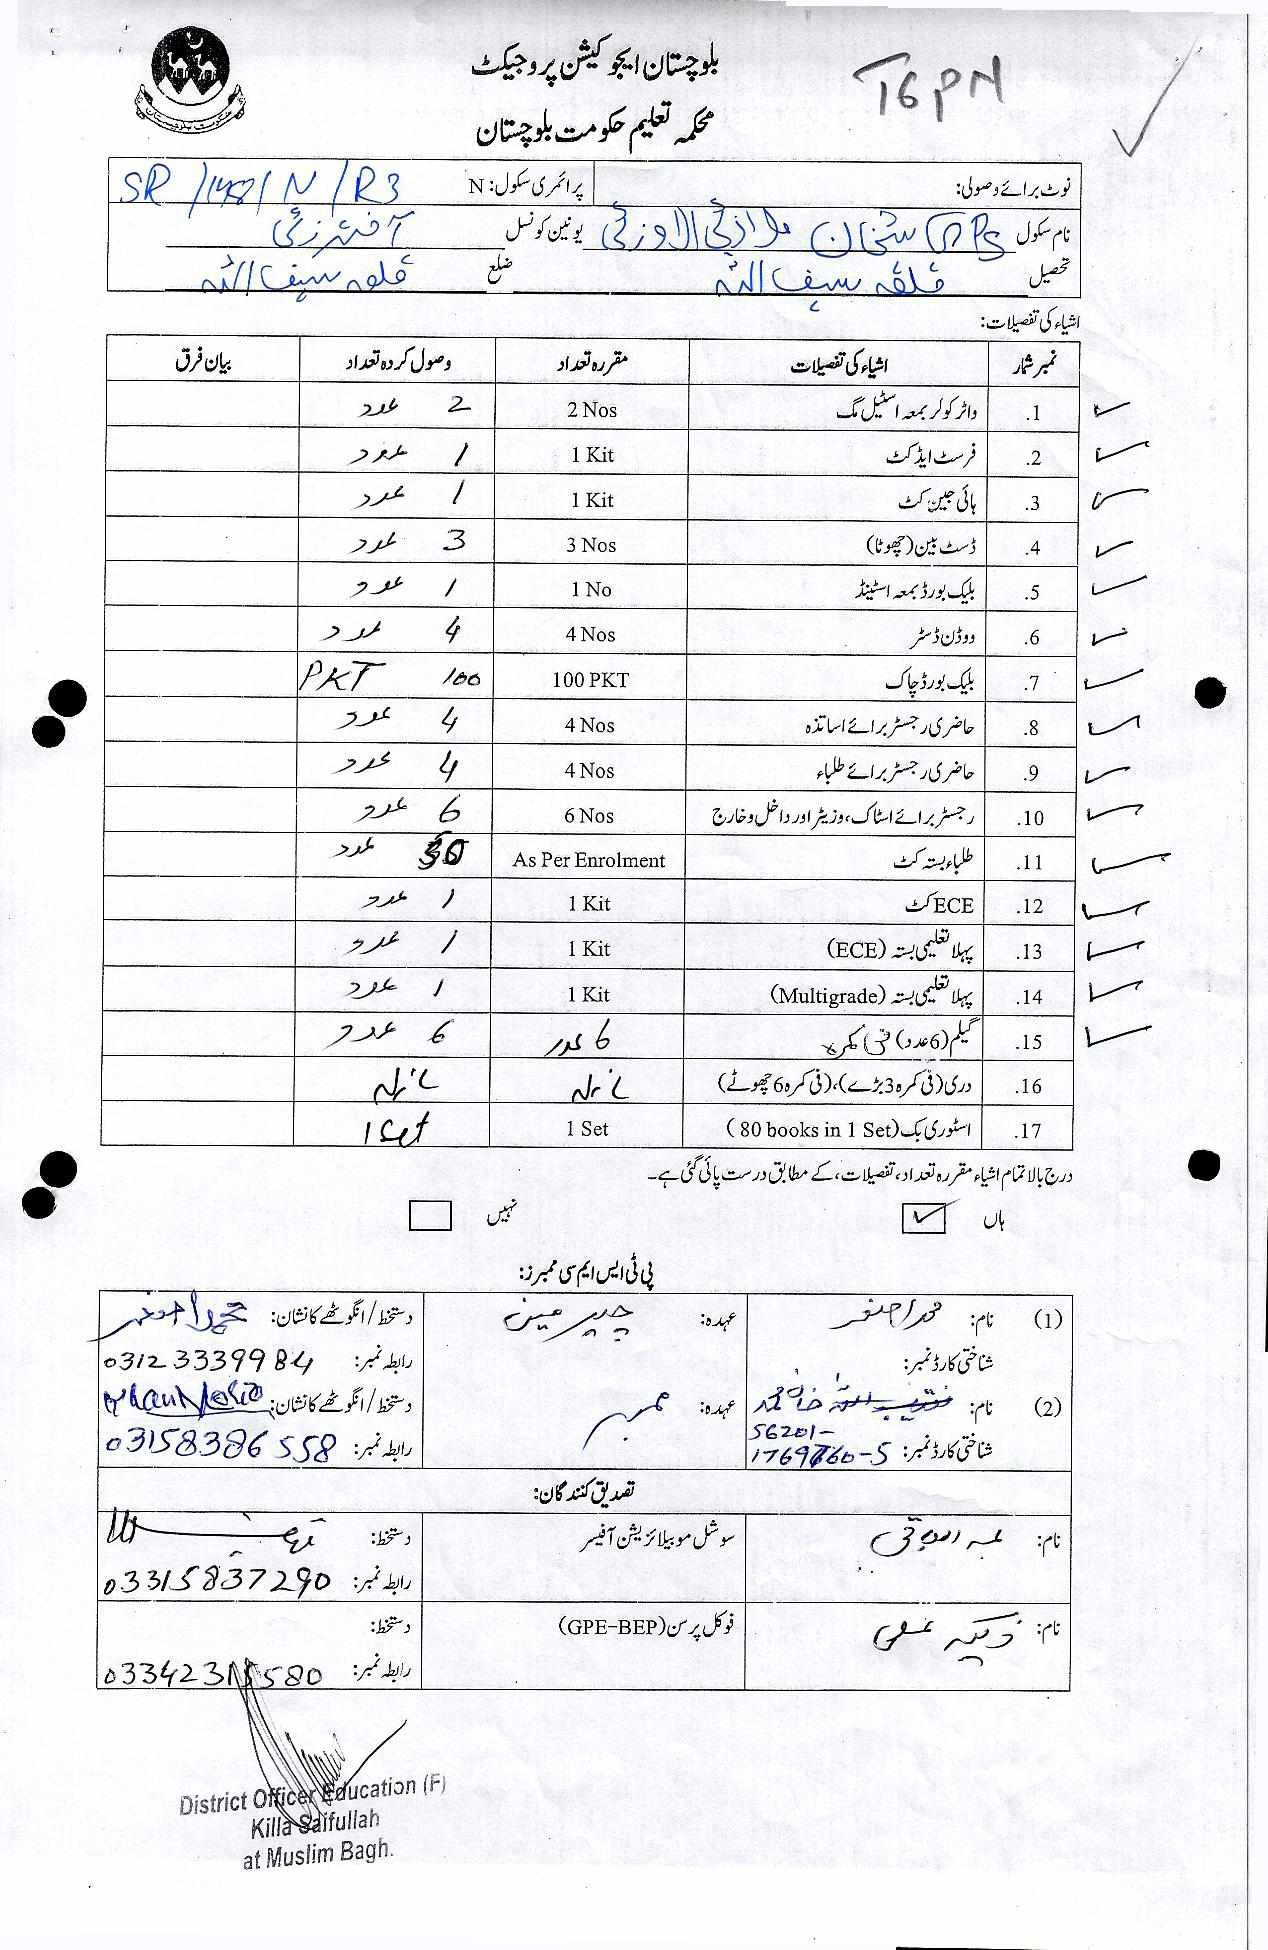 بلوچستان ایجوکیشن پروجیکٹ
TGPN
محکمہ تعلیم حکومت بلوچستان
حکومت بلوچستان
نوٹ برائے وصولی: پرائمری سکول: N SR /1458/ N / R3
نام سکول GPS یونین کونسل
تحصیل قلعہ سیف اللہ ضلع قلعہ سیف اللہ
اشیاء کی تفصیلات:
نمبر شمار اشیاء کی تفصیلات مقررہ تعداد وصول کردہ تعداد بیان فرق
1. واٹر کولر بمعہ اسٹیل مگ 2 Nos 2 عدد
2. فرسٹ ایڈ کٹ 1 Kit 1 عدد
3. ہائی جین کٹ 1 Kit 1 عدد
4. ڈسٹ بین (چھوٹا) 3 Nos 3 عدد
5. بلیک بورڈ بمعہ اسٹینڈ 1 No 1 عدد
6. ووڈن ڈسٹر 4 Nos 4 عدد
7. بلیک بورڈ چاک 100 PKT 100 PKT
8. حاضری رجسٹر برائے اساتذہ 4 Nos 4 عدد
9. حاضری رجسٹر برائے طلباء 4 Nos 4 عدد
10. رجسٹر برائے اسٹاک، وزیٹر اور داخل و خارج 6 Nos 6 عدد
11. طلباء بستہ کٹ As Per Enrolment 50 عدد
12. ECE کٹ 1 Kit 1 عدد
13. پہلا تعلیمی بستہ (ECE) 1 Kit 1 عدد
14. پہلا تعلیمی بستہ (Multigrade) 1 Kit 1 عدد
15. گیلم (6 عدد) فی کمرہ 6 عدد 6 عدد
16. دری (فی کمرہ 3 بڑے)، (فی کمرہ 6 چھوٹے) Nil Nil
17. اسٹوری بک (80 books in 1 Set) 1 Set 1 Set
درج بالا تمام اشیاء مقررہ تعداد، تفصیلات، کے مطابق درست پائی گئی ہے۔
ہاں نہیں
پی ٹی ایس ایم سی ممبرز:
(1) نام: محمد اصغر عہدہ: چیرمین دستخط/انگوٹھے کا نشان: محمد اصغر
شناختی کارڈ نمبر: رابطہ نمبر: 03123339984
(2) نام: عہدہ: ممبر دستخط/انگوٹھے کا نشان:
شناختی کارڈ نمبر: 56201-1769760-5 رابطہ نمبر: 03158386558
تصدیق کنندگان:
نام: عبدالباقی سوشل موبیلائزیشن آفیسر دستخط:
رابطہ نمبر: 03315837290
نام: فوکل پرسن (GPE-BEP) دستخط:
رابطہ نمبر: 03342315580
District Officer Education (F)
Killa Saifullah
at Muslim Bagh.